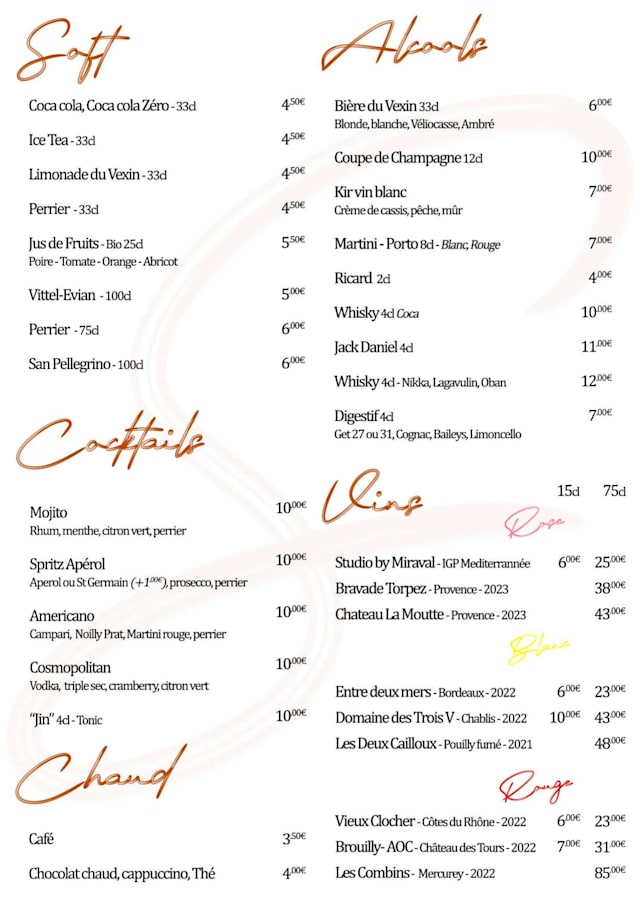 Soft
Coca cola, Coca cola Zéro - 33cl 4,50€
Ice Tea - 33cl 4,50€
Limonade du Vexin - 33cl 4,50€
Perrier - 33cl 4,50€
Jus de Fruits - Bio 25cl 5,50€
Poire - Tomate - Orange - Abricot
Vittel-Evian - 100cl 5,00€
Perrier - 75cl 6,00€
San Pellegrino - 100cl 6,00€
Cocktails
Mojito 10,00€
Rhum, menthe, citron vert, perrier
Spritz Apérol 10,00€
Aperol ou St Germain (+1,00€), prosecco, perrier
Americano 10,00€
Campari, Noilly Prat, Martini rouge, perrier
Cosmopolitan 10,00€
Vodka, triple sec, cramberry, citron vert
“Jin” 4cl - Tonic 10,00€
Chaud
Café 3,50€
Chocolat chaud, cappuccino, Thé 4,00€
Alcools
Bière du Vexin 33cl 6,00€
Blonde, blanche, Véliocasse, Ambré
Coupe de Champagne 12cl 10,00€
Kir vin blanc 7,00€
Crème de cassis, pêche, mûr
Martini - Porto 8cl - Blanc, Rouge 7,00€
Ricard 2cl 4,00€
Whisky 4cl Coca 10,00€
Jack Daniel 4cl 11,00€
Whisky 4cl - Nikka, Lagavulin, Oban 12,00€
Digestif 4cl 7,00€
Get 27 ou 31, Cognac, Baileys, Limoncello
Vins 15cl 75cl
Rose
Studio by Miraval - IGP Mediterrannée 6,00€ 25,00€
Bravade Torpez - Provence - 2023 38,00€
Chateau La Moutte - Provence - 2023 43,00€
Blanc
Entre deux mers - Bordeaux - 2022 6,00€ 23,00€
Domaine des Trois V - Chablis - 2022 10,00€ 43,00€
Les Deux Cailloux - Pouilly fumé - 2021 48,00€
Rouge
Vieux Clocher - Côtes du Rhône - 2022 6,00€ 23,00€
Brouilly- AOC - Château des Tours - 2022 7,00€ 31,00€
Les Combins - Mercurey - 2022 85,00€